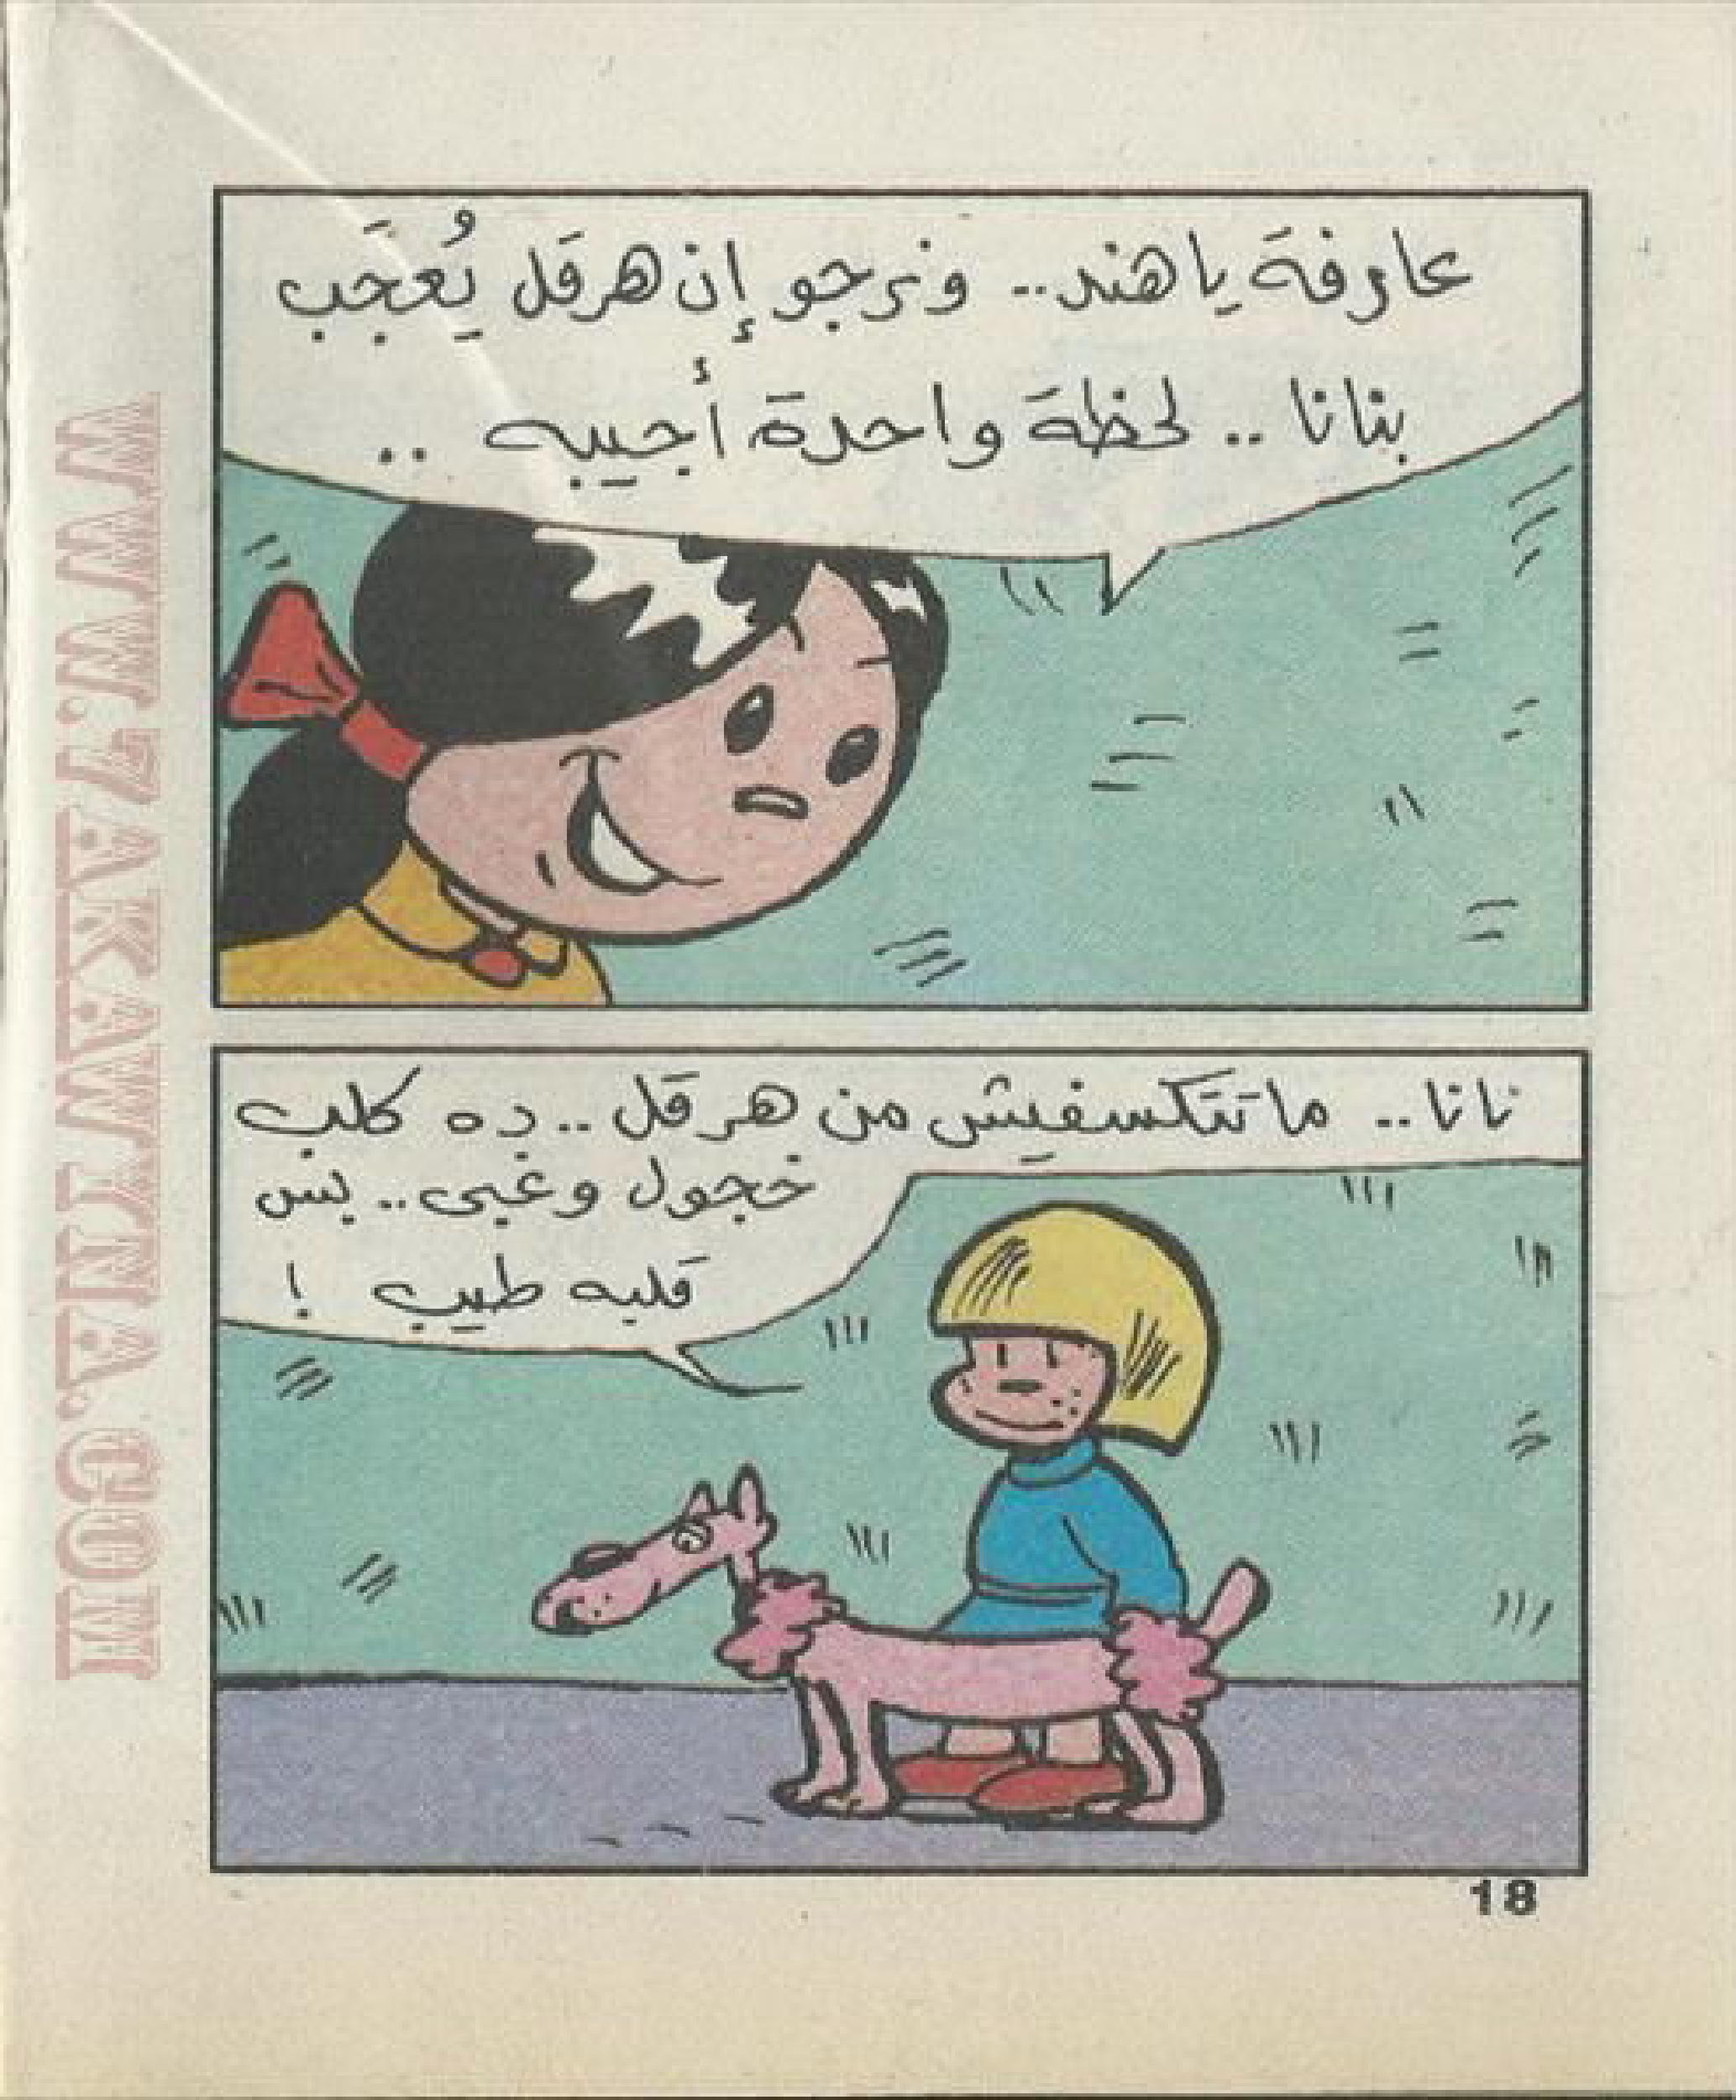 عارفة ياهند.. ونرجو إن هرقل يُعجَب
بنانا .. لحظة واحدة أجيبه ..
نانا.. ما تتكسفيش من هرقل .. ده كلب
خجول وغبى.. بس
قلبه طيب !
18
WWW.7AKAWINA.COM